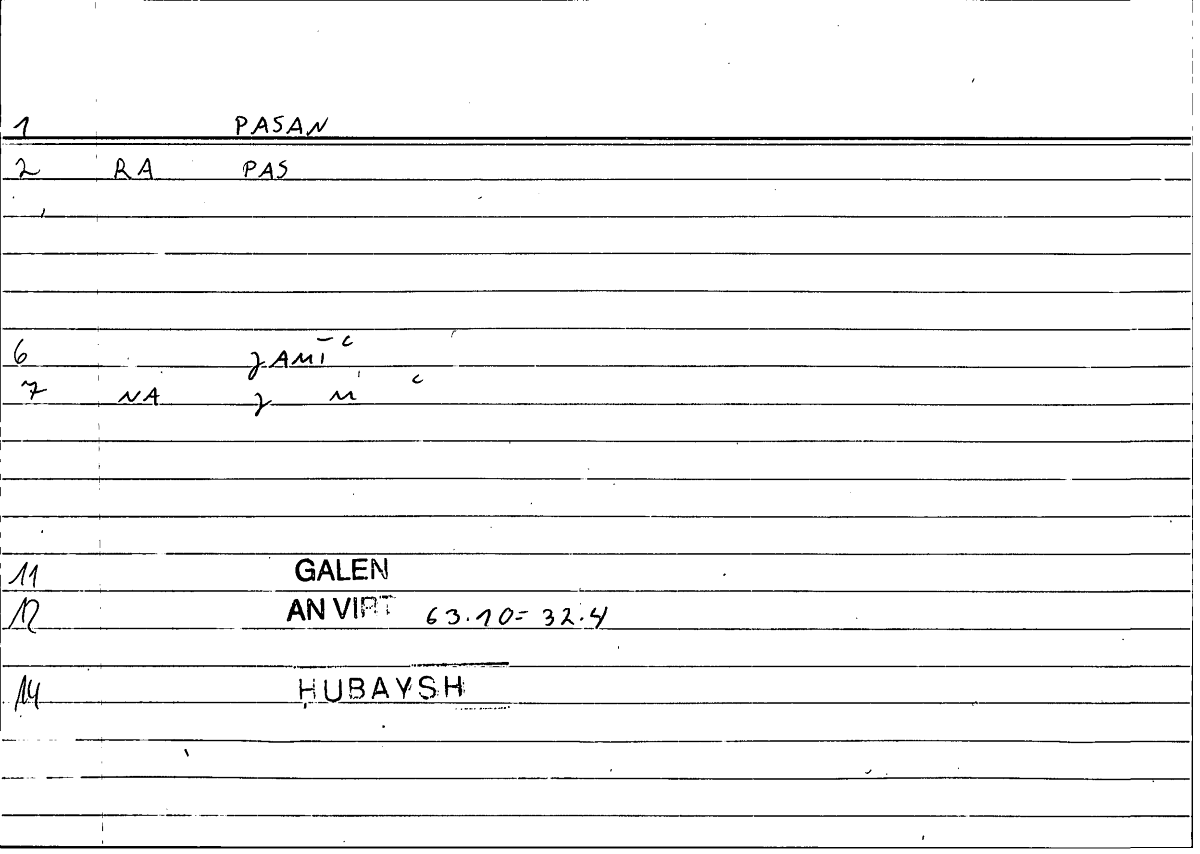 1 PASAN
2 RA PAS
6 ʒAMĪʿ
7 NA ʒ M ʿ
11 GALEN
12 AN VIRT 63.10= 32.4
14 ḤUBAYSH